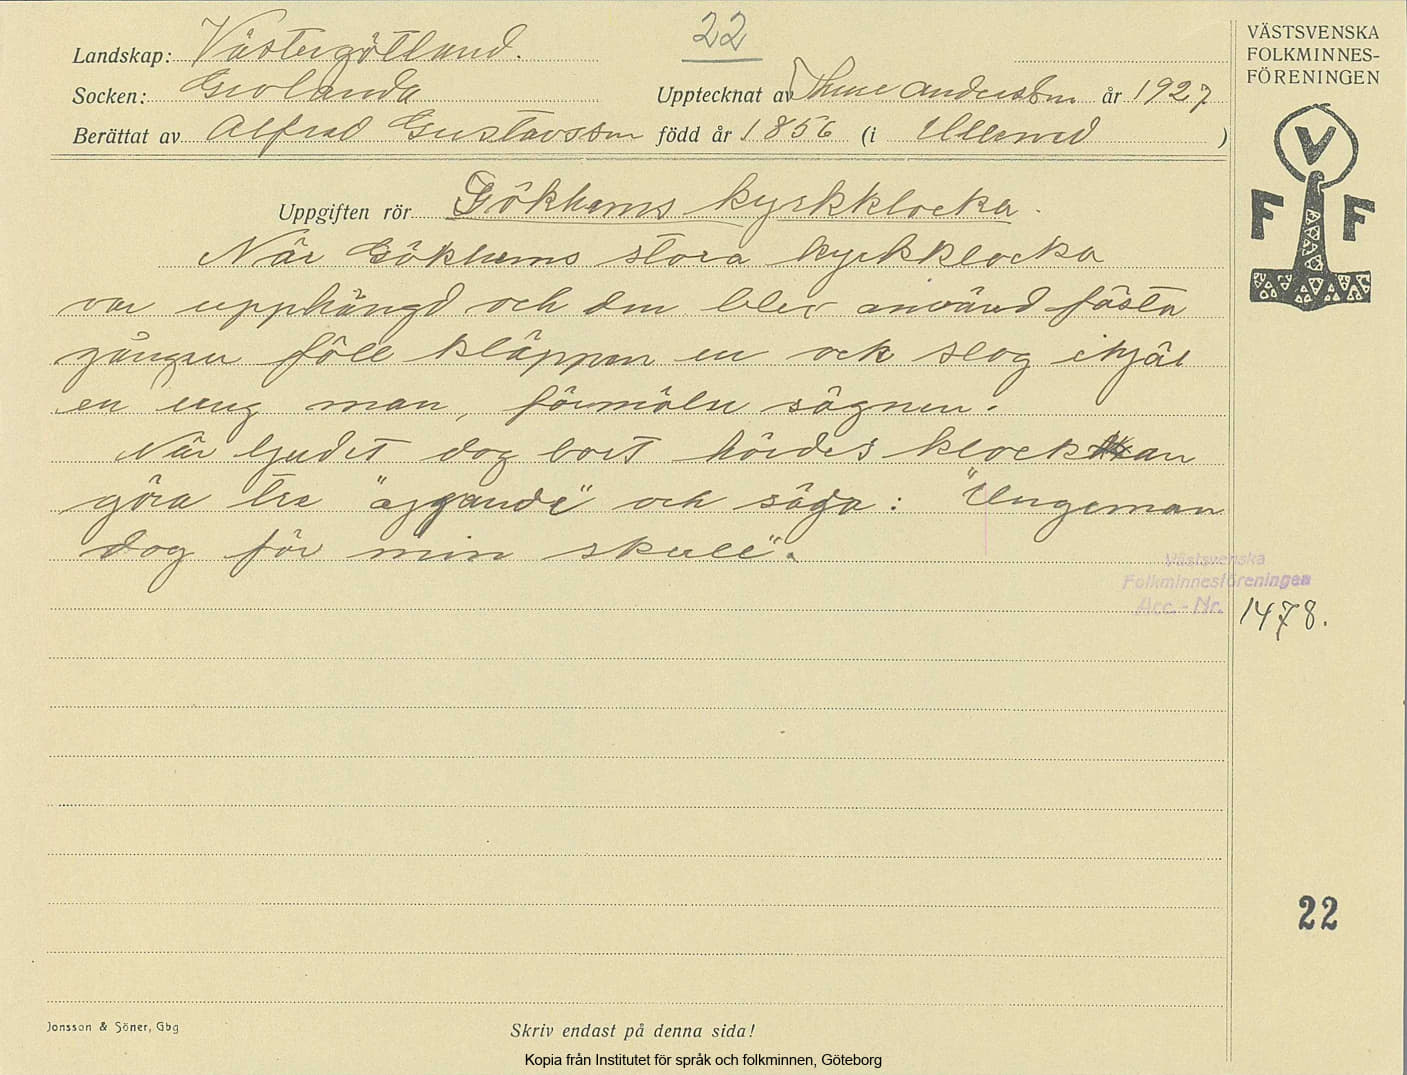 22
VÄSTSVENSKA
FOLKMINNES-
FÖRENINGEN
Landskap: Västergötland.
Socken: Grolanda
Upptecknat av Thure Andersson år 1927
Berättat av Alfred Gustavsson född år 1856 (i Ullened )
V
F F
Uppgiften rör Gökhems kyrkklocka.
När Gökhems stora kyrkklocka
var upphängd och den blev använd fösta
gången föll kläppen ur och slog ihjäl
en ung man, förmäler sägnen.
När ljudet dog bort hördes klockan
göra tre "ajjande" och säga: "Ungeman
dog för min skull".
Västsvenska
Folkminnesföreningen
Acc. - Nr. 1478.
22
Jonsson & Söner, Gbg
Skriv endast på denna sida!
Kopia från Institutet för språk och folkminnen, Göteborg